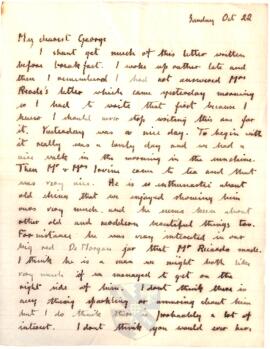 Sunday Oct 22
My dearest George
I shant get much of this letter written
before breakfast. I woke up rather late and
then I remembered I had not answered Mrs
Reade's letter which came yesterday morning
so I had to write that first because I
knew I should never stop writing this one for
it. Yesterday was a nice day. To begin with
it really was a lovely day and we had a
nice walk in the morning in the sunshine.
Then Mr & Mrs Irvine came to tea and that
was very nice. He is so enthusiastic about
old china that we enjoyed showing him
ours very much and he seems keen about
other old and modern beautiful things too.
For instance he was very interested in our
big red De Morgan jar that Mr Ricardo made.
I think he is a man we might both like
very much if we managed to get on the
right side of him. I dont think there is
any thing sparkling or amusing about him
but I do think there probably a lot of
interest. I dont think you would ever